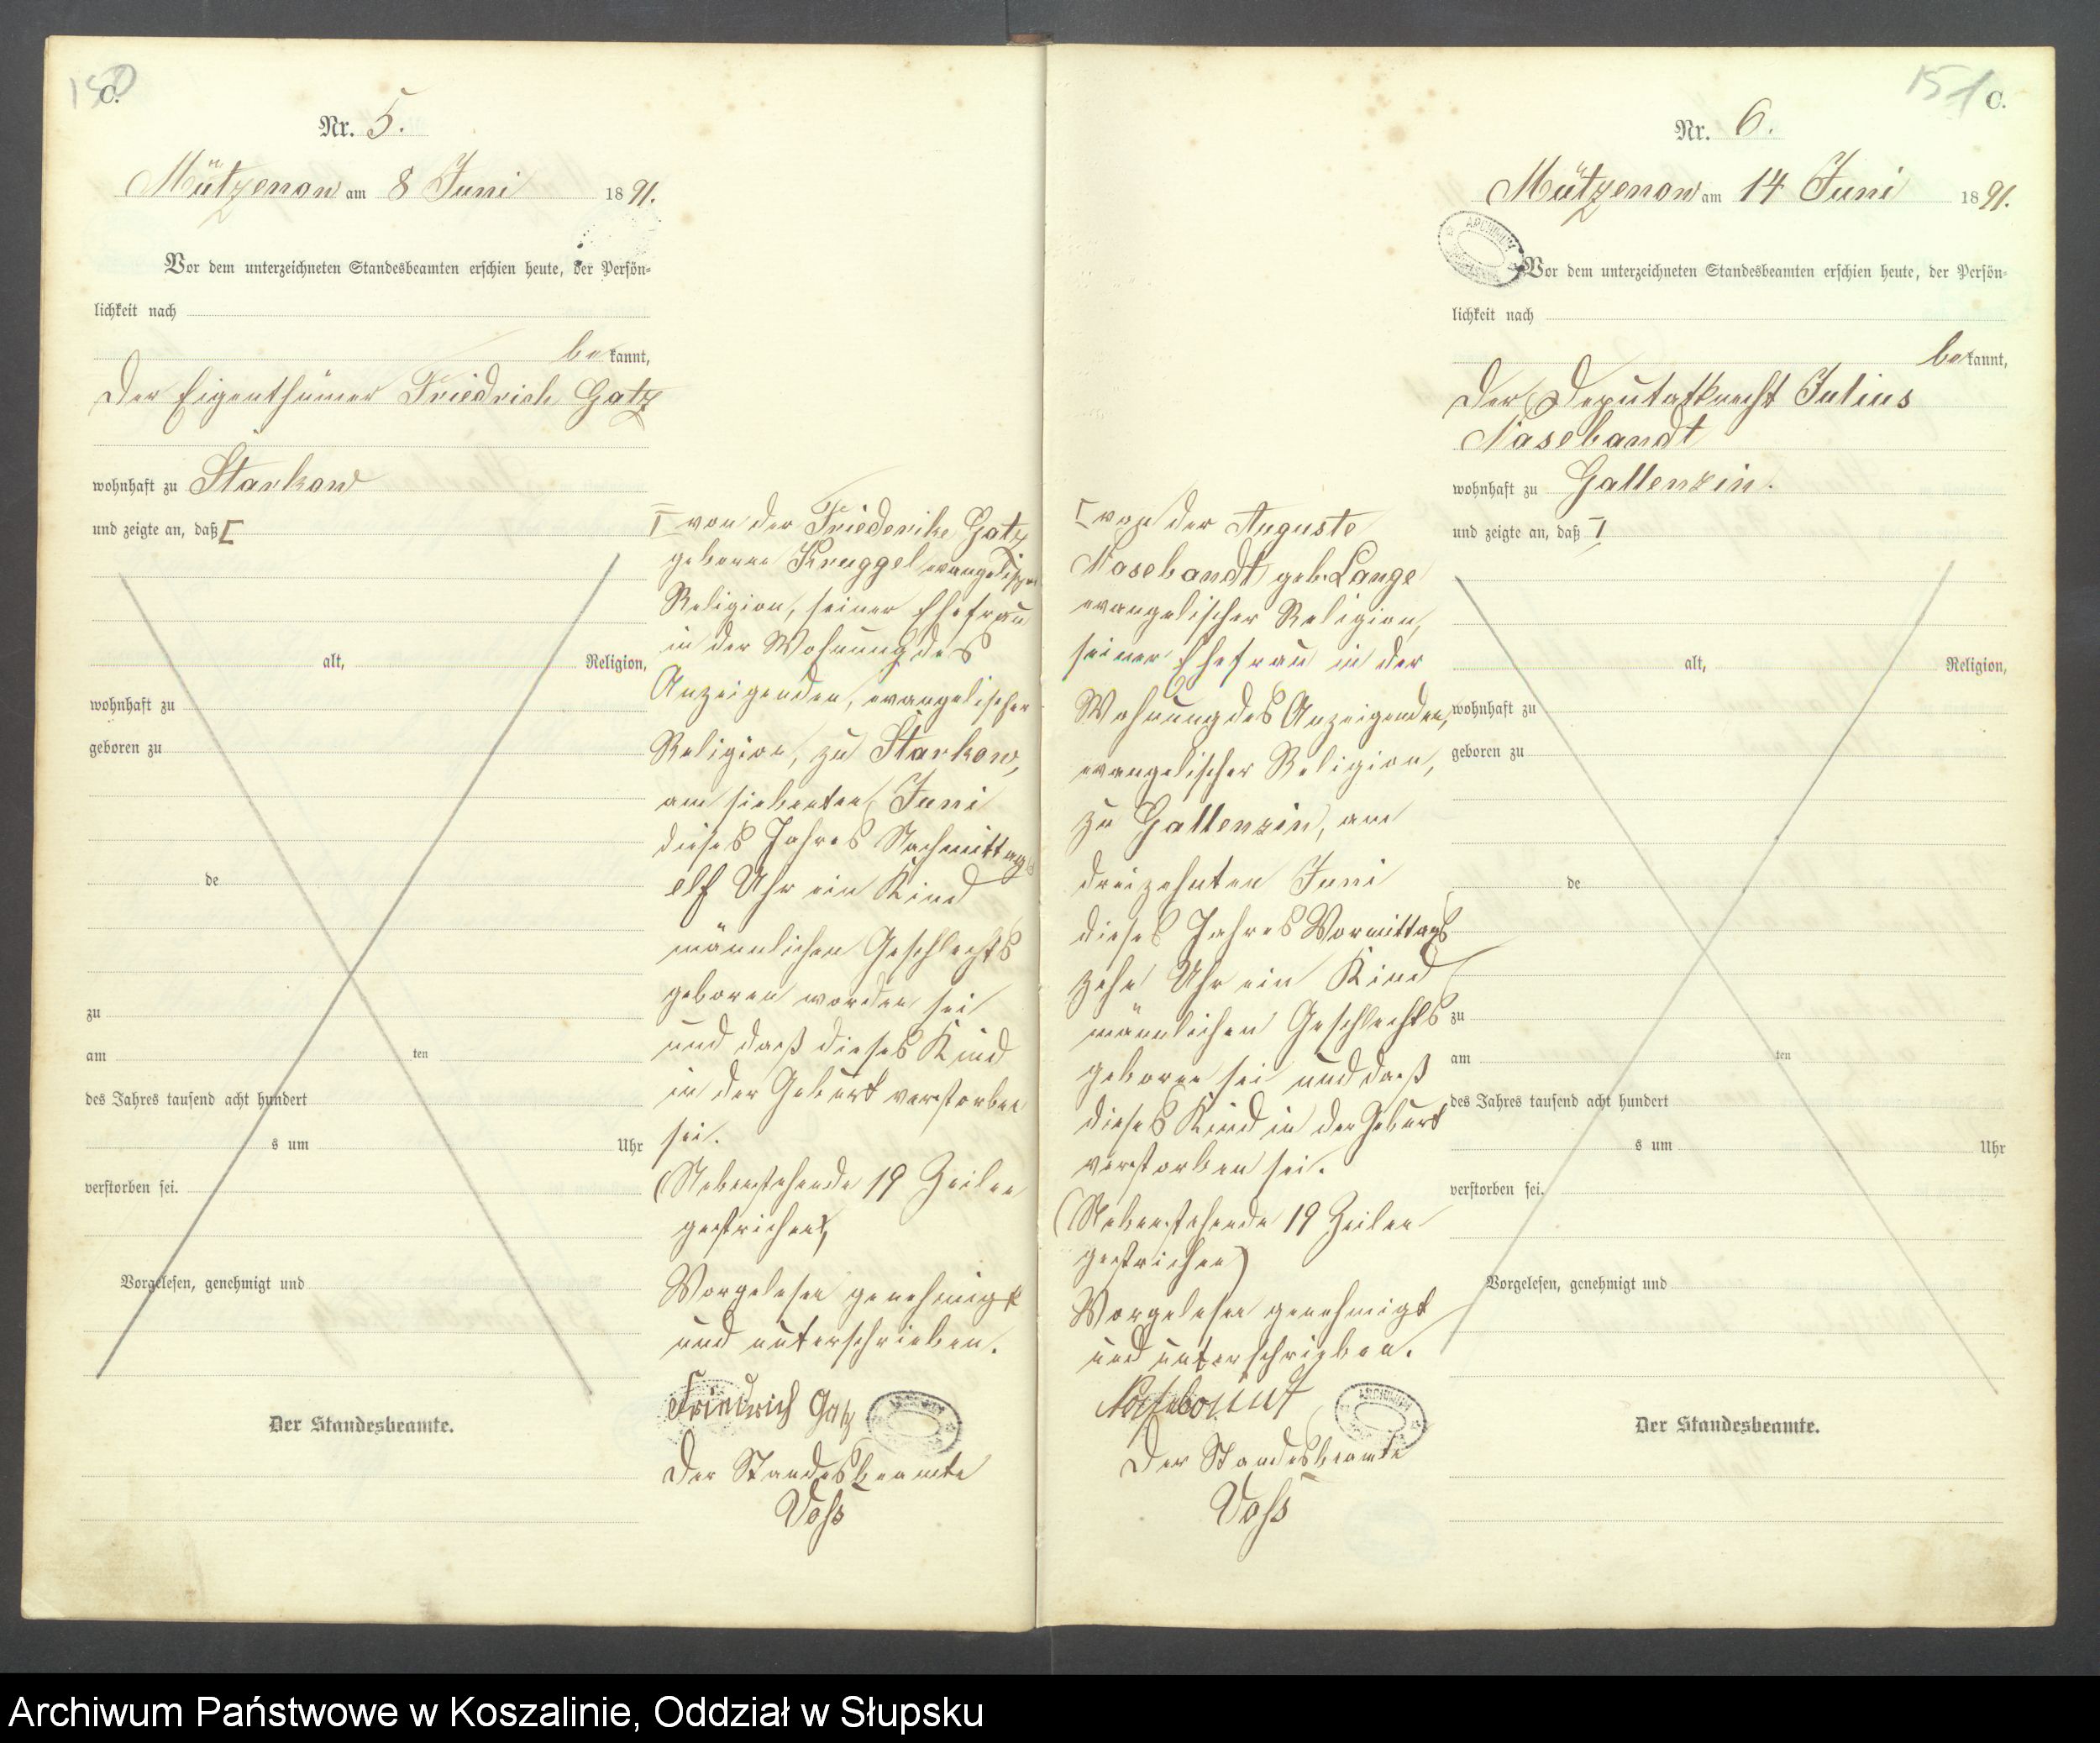 150
C.
Nr. 5.
Mützenow am 8 Juni 1891.
Vor dem unterzeichneten Standesbeamten erschien heute, der Persön-
lichkeit nach
be kannt,
der Eigenthümer Friedrich Gatz
wohnhaft zu Starkow
und zeigte an, daß [
alt, Religion,
wohnhaft zu
geboren zu
de
zu
am ten
des Jahres tausend acht hundert
s um Uhr
verstorben sei.
Vorgelesen, genehmigt und
Der Standesbeamte.
von der Friederike Gatz
geborne Kruggel evangelischer
Religion, seiner Ehefrau
in der Wohnung des
Anzeigenden, evangelischer
Religion, zu Starkow,
am siebenten Juni
dieses Jahres Nachmittags
elf Uhr ein Kind
männlichen Geschlechts
geboren worden sei
und daß dieses Kind
in der Geburt verstorben
sei.
(Nebenstehende 19 Zeilen
gestrichen)
Vorgelesen genehmigt
und unterschrieben.
Friedrich Gatz
Der Standesbeamte
Voß
151
C.
Nr. 6.
Mützenow am 14 Juni 1891.
Vor dem unterzeichneten Standesbeamten erschien heute, der Persön-
lichkeit nach
be kannt,
der Deputatknecht Julius
Nasebandt
wohnhaft zu Gallenzin.
und zeigte an, daß
alt, Religion,
wohnhaft zu
geboren zu
de
zu
am ten
des Jahres tausend acht hundert
s um Uhr
verstorben sei.
Vorgelesen, genehmigt und
Der Standesbeamte.
[von der Auguste
Nasebandt geb. Lange
evangelischer Religion,
seiner Ehefrau in der
Wohnung des Anzeigenden,
evangelischer Religion,
zu Gallenzin, am
dreizehnten Juni
dieses Jahres Vormittags
zehn Uhr ein Kind
männlichen Geschlechts
geboren sei und daß
dieses Kind in der Geburt
verstorben sei.
(Nebenstehende 19 Zeilen
gestrichen)
Vorgelesen genehmigt
und unterschrieben.
Der Standesbeamte
Voß
Archiwum Państwowe w Koszalinie, Oddział w Słupsku